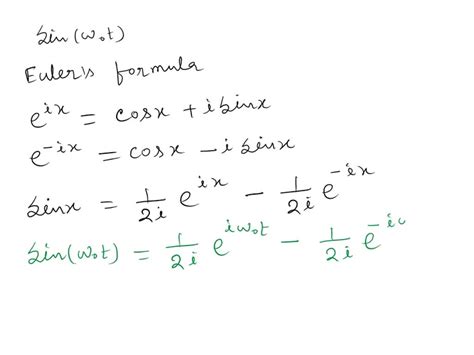 sin(ω₀t)
Euler's formula
e^{ix} = cosx + i sinx
e^{-ix} = cosx - i sinx
sinx = \frac{1}{2i} e^{ix} - \frac{1}{2i} e^{-ix}
sin(ω₀t) = \frac{1}{2i} e^{iω₀t} - \frac{1}{2i} e^{-i